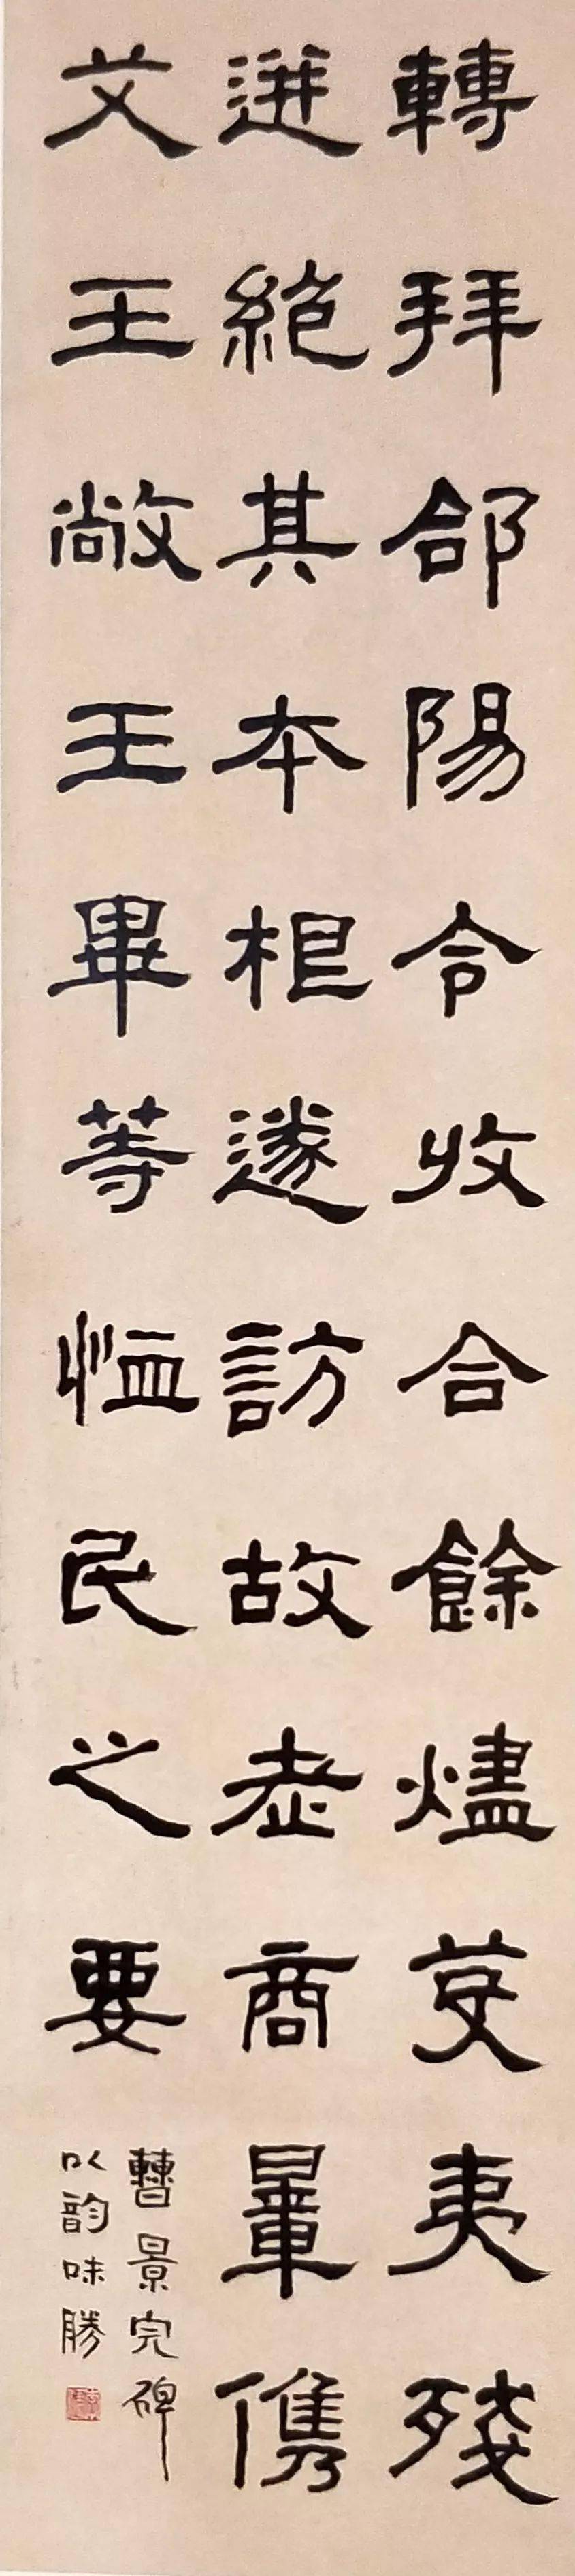 轉拜郃陽令收合餘燼芟夷殘
迸絕其本根遂訪故老商量儁
艾王敞王畢等恤民之要
曹景完碑
以韵味勝